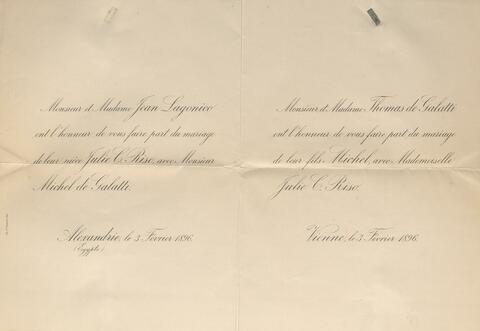 Monsieur et Madame Jean Lagonico
ont l'honneur de vous faire part du mariage
de leur nièce Julie C. Riso, avec Monsieur
Michel de Galatti.
Alexandrie, le 3 Février 1896.
(Egypte)
Monsieur et Madame Thomas de Galatti
ont l'honneur de vous faire part du mariage
de leur fils Michel, avec Mademoiselle
Julie C. Riso.
Vienne, le 3 Février 1896.